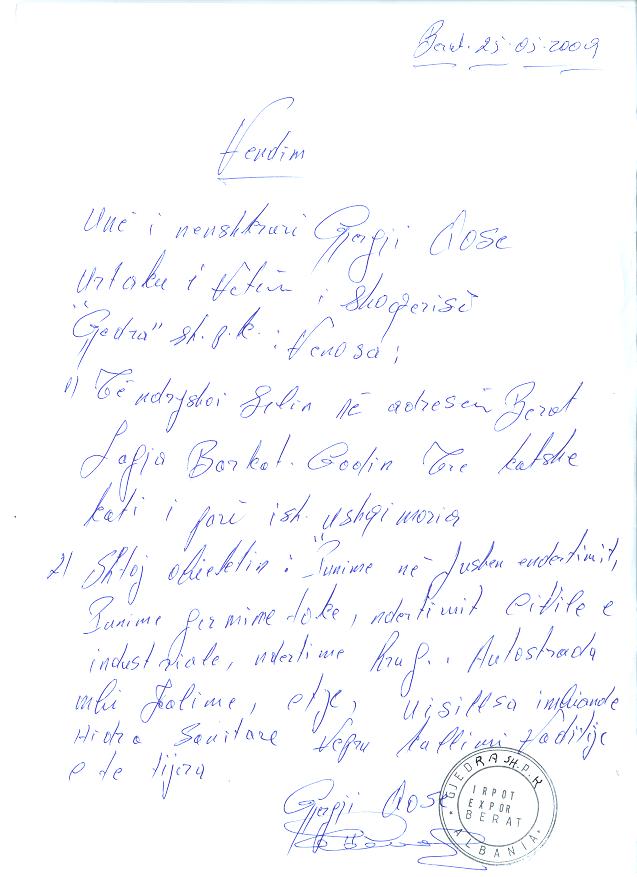 Berat. 25.05.2009
Vendim
Unë i nenshkruri Gjergji Qose
Urtaku i Vetëm i Shoqerisë
"Gjedra" sh.p.k. : Vendosa ;
1) Të ndryshoi Selin në adresën Berat
Lagja Barkat. Godin Tre katshe
kati i parë ish. ushqimoria
2) Shtoj obiektin : "Punime në fushen endertimit,
Punime germime toke, ndertimit Civile e
industriale, ndertime Rrug. . Autostrada
mbi kalime, etje,
Hidro Sanitare Vepra
e te tjera
Gjergji Qose
GJEDRA SH.P.K
IRPOT
EXPOR
BERAT
* ALBANIA *